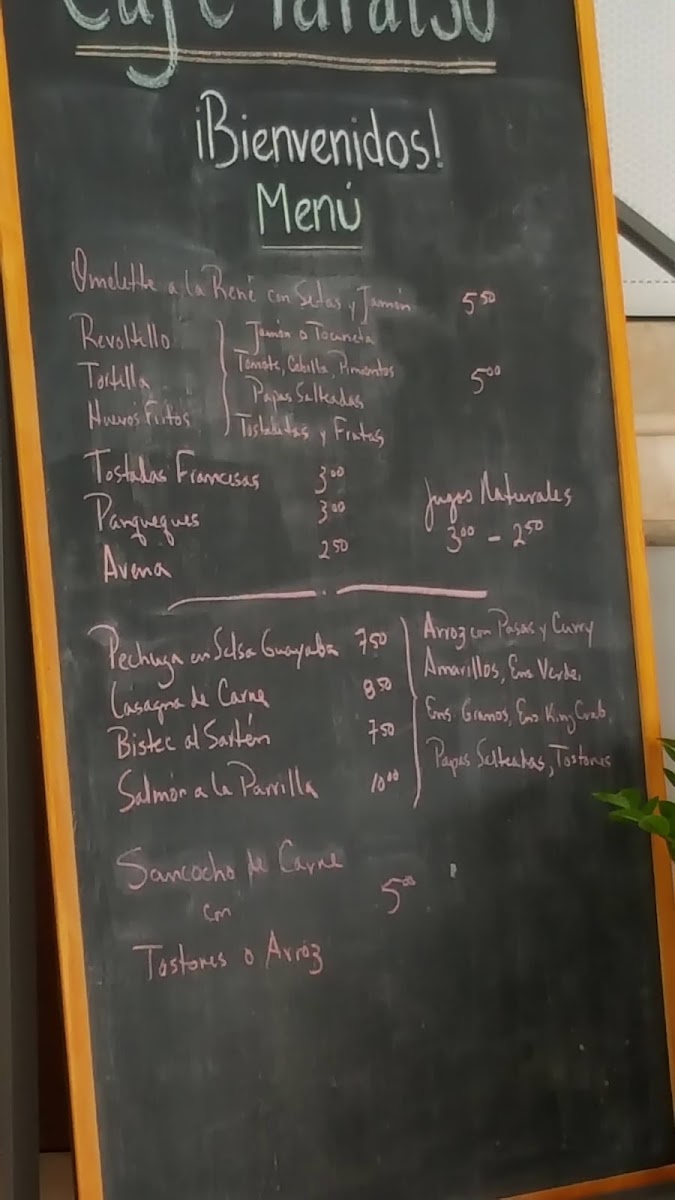 Café Paraíso
¡Bienvenidos!
Menú
Omelette a la René con Setas y Jamón 5.50
Revoltillo
Tortilla
Huevos Fritos
Jamón o Tocineta
Tomate, Cebilla, Pimientos
Papas Salteadas
Tostaditas y Frutas
5.00
Tostadas Francesas 3.00
Panqueques 3.00
Avena 2.50
Jugos Naturales
3.00 - 2.50
Pechuga en Salsa Guayaba 7.50
Lasagna de Carne 8.50
Bistec al Sartén 7.50
Salmón a la Parrilla 10.00
Arroz con Pasas y Curry
Amarillos, Ens Verde,
Ens. Granos, Ens King Crab,
Papas Salteadas, Tostones
Sancocho de Carne
con 5.00
Tostones o Arroz